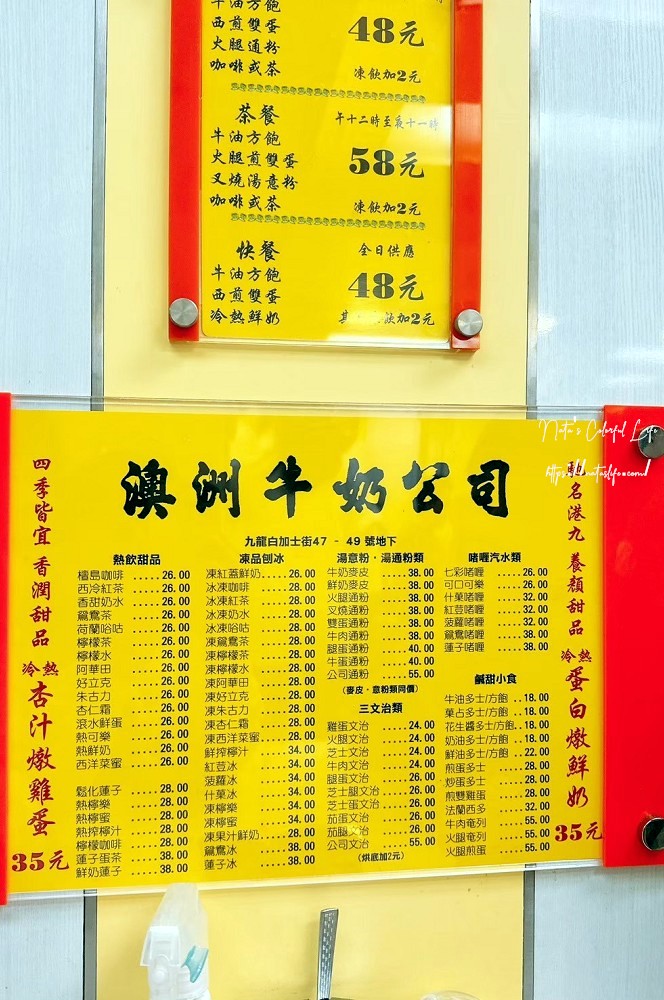 西煎雙蛋
火腿通粉
咖啡或茶
48元
凍飲加2元
茶餐
午十二時至夜十一時
牛油方飽
火腿煎雙蛋
叉燒湯意粉
咖啡或茶
58元
凍飲加2元
快餐
全日供應
牛油方飽
西煎雙蛋
冷熱鮮奶
48元
飲加2元
Nata's Colorful Life
四季皆宜 香潤甜品
冷熱
杏汁燉雞蛋
35元
澳洲牛奶公司
九龍白加士街47 - 49 號地下
熱飲甜品
檀島咖啡 .....26.00
西冷紅茶 .....26.00
香甜奶水 .....26.00
鴛鴦茶 .....26.00
荷蘭哈咕 .....26.00
檸檬茶 .....26.00
檸檬水 .....26.00
阿華田 .....26.00
好立克 .....26.00
朱古力 .....26.00
杏仁霜 .....26.00
滾水鮮蛋 .....26.00
熱可樂 .....26.00
熱鮮奶 .....26.00
西洋菜蜜 .....26.00
鬆化蓮子 .....28.00
熱檸樂 .....28.00
熱檸蜜 .....28.00
熱檸檸汁 .....28.00
檸檬咖啡 .....28.00
蓮子蛋茶 .....38.00
鮮奶蓮子 .....38.00
凍品刨冰
凍紅蓋鮮奶 .....26.00
冰凍咖啡 .....28.00
冰凍紅茶 .....28.00
冰凍奶水 .....28.00
冰凍哈咕 .....28.00
凍鴛鴦茶 .....28.00
凍檸檬茶 .....28.00
凍檸檬水 .....28.00
凍阿華田 .....28.00
凍好立克 .....28.00
凍朱古力 .....28.00
凍杏仁霜 .....28.00
凍西洋菜蜜 .....28.00
鮮搾檸汁 .....34.00
紅荳冰 .....34.00
菠蘿冰 .....34.00
什菓冰 .....34.00
凍檸樂 .....34.00
凍檸蜜 .....34.00
凍果汁鮮奶 .....28.00
鴛鴦冰 .....38.00
蓮子冰 .....38.00
湯意粉‧湯通粉類
牛奶麥皮 .....38.00
鮮奶麥皮 .....38.00
火腿通粉 .....38.00
叉燒通粉 .....38.00
雙蛋通粉 .....38.00
牛肉通粉 .....38.00
腿蛋通粉 .....40.00
牛蛋通粉 .....40.00
公司通粉 .....55.00
(麥皮‧意粉類同價)
三文治類
雞蛋文治 .....24.00
火腿文治 .....24.00
芝士文治 .....24.00
牛肉文治 .....24.00
腿蛋文治 .....26.00
芝士腿文治 .....26.00
芝士蛋文治 .....26.00
茄蛋文治 .....26.00
茄腿文治 .....26.00
公司文治 .....55.00
(烘底加2元)
啫喱汽水類
七彩啫喱 .....26.00
可口可樂 .....26.00
什菓啫喱 .....32.00
紅荳啫喱 .....32.00
菠蘿啫喱 .....32.00
鴛鴦啫喱 .....38.00
蓮子啫喱 .....38.00
鹹甜小食
牛油多士/方飽 ..18.00
菓占多士/方飽 ..18.00
花生醬多士/方飽 ..18.00
奶油多士/方飽 ..18.00
鮮油多士/方飽 ..22.00
煎蛋多士 ....28.00
炒蛋多士 ....28.00
煎雙雞蛋 ....28.00
法蘭西多 ....32.00
牛肉奄列 ....55.00
火腿奄列 ....55.00
火腿煎蛋 ....55.00
名港九 養顏甜品
冷熱
蛋白燉鮮奶
35元